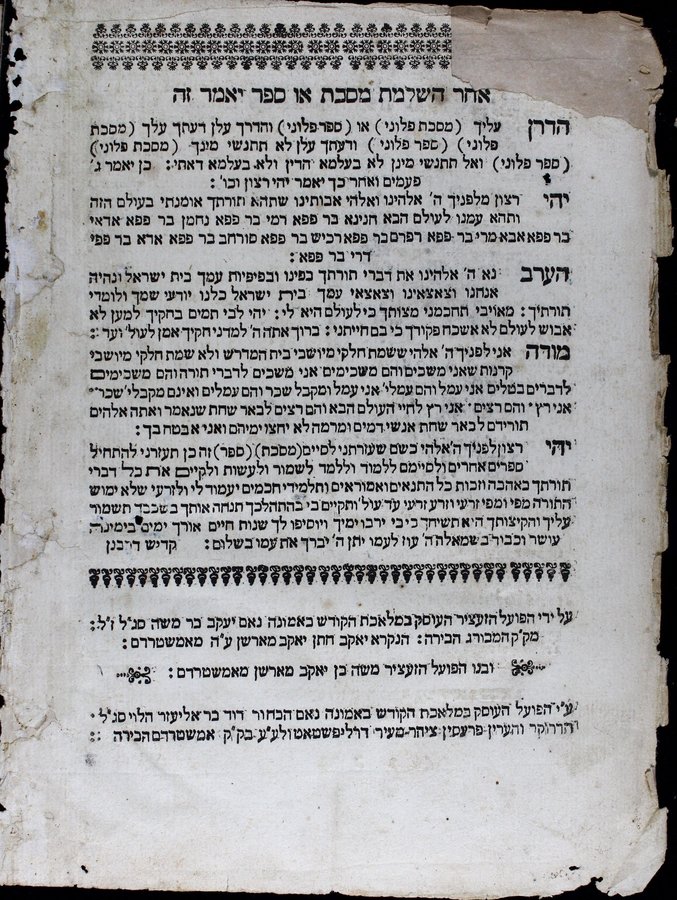 אחר השלמת מסכת או ספר יאמר זה
הדרן עליך (מסכת פלוני) או (ספר פלוני) והדרך עלן דעתך עלך (מסכת
פלוני) (ספר פלוני) ודעתך עלן לא תתנשי מינך (מסכת פלוני)
(ספר פלוני) ואל תתנשי מינן לא בעלמא הדין ולא בעלמא דאתי: כן יאמר ג'
פעמים ואחר כך יאמר יהי רצון וכו':
יהי רצון מלפניך ה' אלהינו ואלהי אבותינו שתהא תורתך אומנתי בעולם הזה
ותהא עמנו לעולם הבא חנינא בר פפא רמי בר פפא נחמן בר פפא אדאי
בר פפא אבא מרי בר פפא רפרם בר פפא רכיש בר פפא סורחב בר פפא אדא בר פפי
דרי בר פפא:
הערב נא ה' אלהינו את דברי תורתך בפינו ובפיפיות עמך בית ישראל ונהיה
אנחנו וצאצאינו וצאצאי עמך בית ישראל כלנו יודעי שמך ולומדי
תורתיך: מאויבי תחכמני מצותך כי לעולם היא לי: יהי לבי תמים בחקיך למען לא
אבוש לעולם לא אשכח פקורך כי בם חייתני: ברוך אתה ה' למדני חקיך אמן לעול' ועד:
מודה אני לפניך ה' אלהי ששמת חלקי מיושבי בית המדרש ולא שמת חלקי מיושבי
קרנות שאני משכים והם משכימים אני משכים לדברי תורה והם משכימים
לדברים בטלים אני עמל והם עמלי' אני עמל ומקבל שכר והם עמלים ואינם מקבלי' שכר
אני רץ והם רצים אני רץ לחיי העולם הבא והם רצים לבאר שחת שנאמר ואתה אלהים
תורידם לבאר שחת אנשי דמים ומרמה לא יחצו ימיהם ואני אבטח בך:
יהי רצון לפניך ה' אלהי כשם שעזרתני לסיים (מסכת) (ספר) זה כן תעזרני להתחיל
ספרים אחרים ולסיימם ללמוד וללמד לשמור ולעשות ולקיים את כל דברי
תורתך באהבה וזכות כל התנאים ואמוראים ותלמידי חכמים יעמוד לי ולזרעי שלא ימוש
התורה מפי ומפי זרעי וזרע זרעי עד עול' ותקיים בי בהתהלכך תנחה אותך בשכבך תשמור
עליך והקיצותך היא תשיחך כי בי ירבו ימיך ויוסיפו לך שנות חיים אורך ימים בימינה
עושר וכבוד בשמאלה ה' עוז לעמו יתן ה' יברך את עמו בשלום: קדיש דרבנן
על ידי הפועל הזעציר העוסק במלאכת הקודש באמונה נאם יעקב בר משה סג"ל ז"ל:
מק"ק המבורג הבירה: הנקרא יעקב חתן יעקב מארשן ע"ה מאמשטרדם:
ובנו הפועל הזעציר משה בן יעקב מארשן מאמשטרדם:
ע"י הפועל העוסק במלאכת הקודש באמונה נאם הבחור דוד בר אליעזר הלוי סג"ל
הדרוקר והערין פרעסין ציהר מעיר ולע"ע בק"ק אמשטרדם הבירה